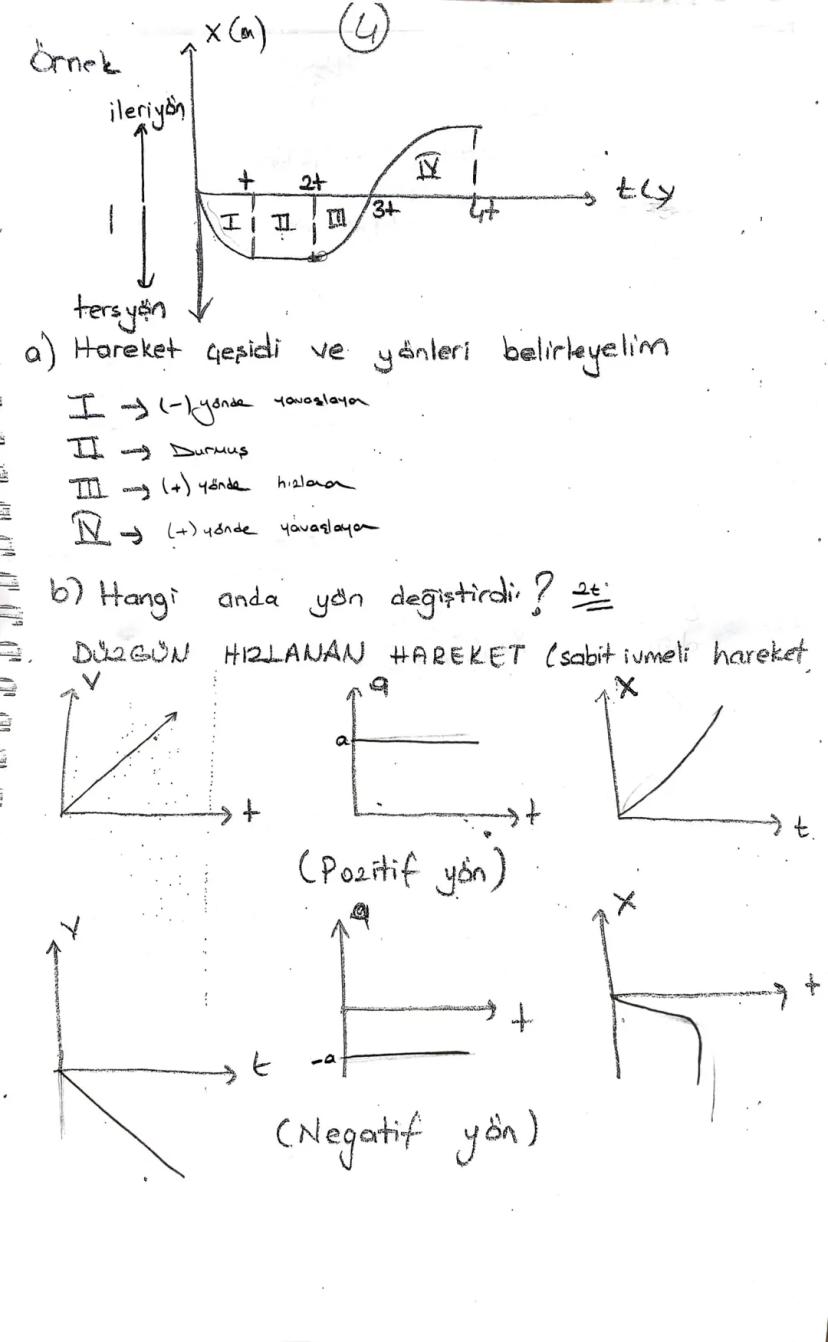 4
Örnek
X(m)
ileri yön
t 2t 3t 4t
I II III IV
ters yön
a) Hareket çeşidi ve yönleri belirleyelim
I → (-) yönde yavaşlayan
II → Durmuş
III → (+) yönde hızlanan
IV → (+) yönde yavaşlayan
b) Hangi anda yön değiştirdi? 2t
DÜZGÜN HIZLANAN HAREKET (sabit ivmeli hareket
V a X
a
t t t
(Pozitif yön)
V a X
t t t
-a
(Negatif yön)